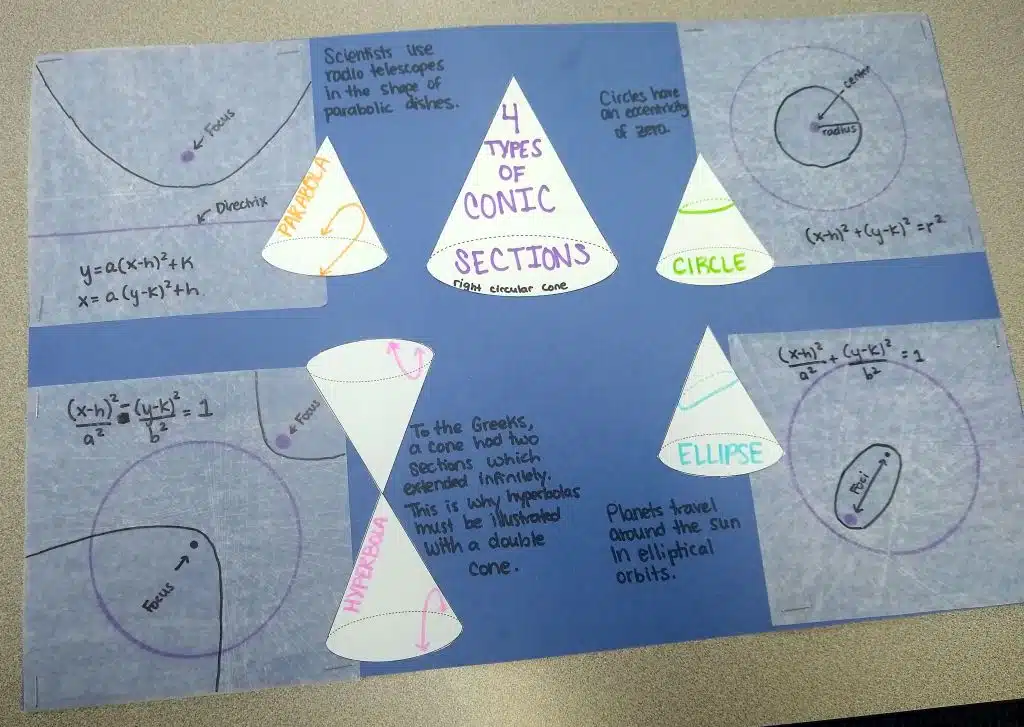 Focus
Directrix
y=a(x-h)²+k
x=a(y-k)²+h
Scientists use
radio telescopes
in the shape of
parabolic dishes.
PARABOLA
4
TYPES
OF
CONIC
SECTIONS
right circular cone
Circles have
an eccentricity
of zero.
CIRCLE
center
radius
(x-h)²+(y-k)²=r²
(x-h)²/a² - (y-k)²/b² = 1
Focus
Focus
HYPERBOLA
To the Greeks,
a cone had two
sections which
extended infinitely.
This is why hyperbolas
must be illustrated
with a double
cone.
ELLIPSE
Planets travel
around the sun
in elliptical
orbits.
(x-h)²/a² + (y-k)²/b² = 1
Foci